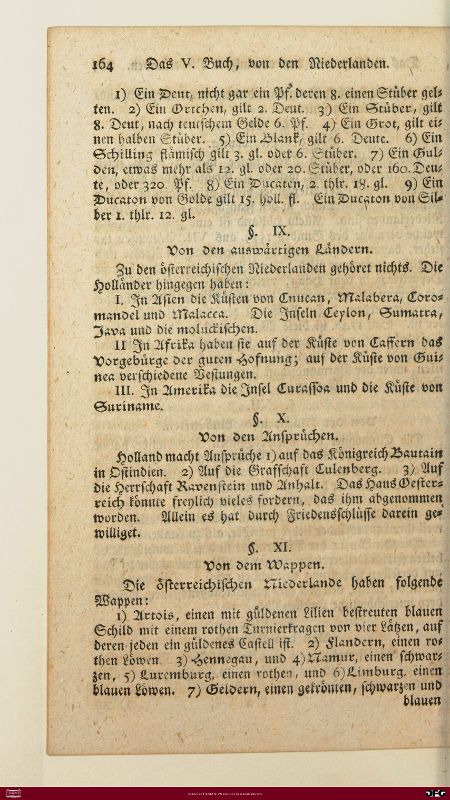 164 Das V. Buch, von den Niederlanden.
1) Ein Deut, nicht gar ein Pf. deren 8. einen Stüber gel-
ten. 2) Ein Ortchen, gilt 2. Deut. 3) Ein Stüber, gilt
8. Deut, nach teutschem Gelde 6. Pf. 4) Ein Grot, gilt ei-
nen halben Stüber. 5) Ein Blank, gilt 6. Deute. 6) Ein
Schilling flämisch gilt 3. gl. oder 6. Stüber. 7) Ein Gul-
den, etwas mehr als 12. gl. oder 20. Stüber, oder 160. Deu-
te, oder 320. Pf. 8) Ein Ducaten, 2. thlr. 18. gl. 9) Ein
Ducaton von Golde gilt 15. holl. fl. Ein Ducaton von Sil-
ber 1. thlr. 12. gl.
§. IX.
Von den auswärtigen Ländern.
Zu den österreichischen Niederlanden gehöret nichts. Die
Holländer hingegen haben:
I. In Asien die Küsten von Cnucan, Malabera, Coro-
mandel und Malacca. Die Inseln Ceylon, Sumatra,
Java und die moluckischen.
II In Afrika haben sie auf der Küste von Caffern das
Vorgebürge der guten Hofnung; auf der Küste von Gui-
nea verschiedene Vestungen.
III. In Amerika die Insel Curassoa und die Küste von
Suriname.
§. X.
Von den Ansprüchen.
Holland macht Ansprüche 1) auf das Königreich Bautain
in Ostindien. 2) Auf die Grafschaft Culenberg. 3) Auf
die Herrschaft Ravenstein und Anhalt. Das Haus Oester-
reich könnte freylich vieles fordern, das ihm abgenommen
worden. Allein es hat durch Friedensschlüsse darein ge-
williget.
§. XI.
Von dem Wappen.
Die österreichischen Niederlande haben folgende
Wappen:
1) Artois, einen mit güldenen Lilien bestreuten blauen
Schild mit einem rothen Turnierkragen von vier Lätzen, auf
deren jeden ein güldenes Castell ist. 2) Flandern, einen ro-
then Löwen. 3) Hennegau, und 4) Namur, einen schwar-
zen, 5) Luxemburg, einen rothen, und 6) Limburg, einen
blauen Löwen. 7) Geldern, einen gekrönten, schwarzen und
blauen
DFG